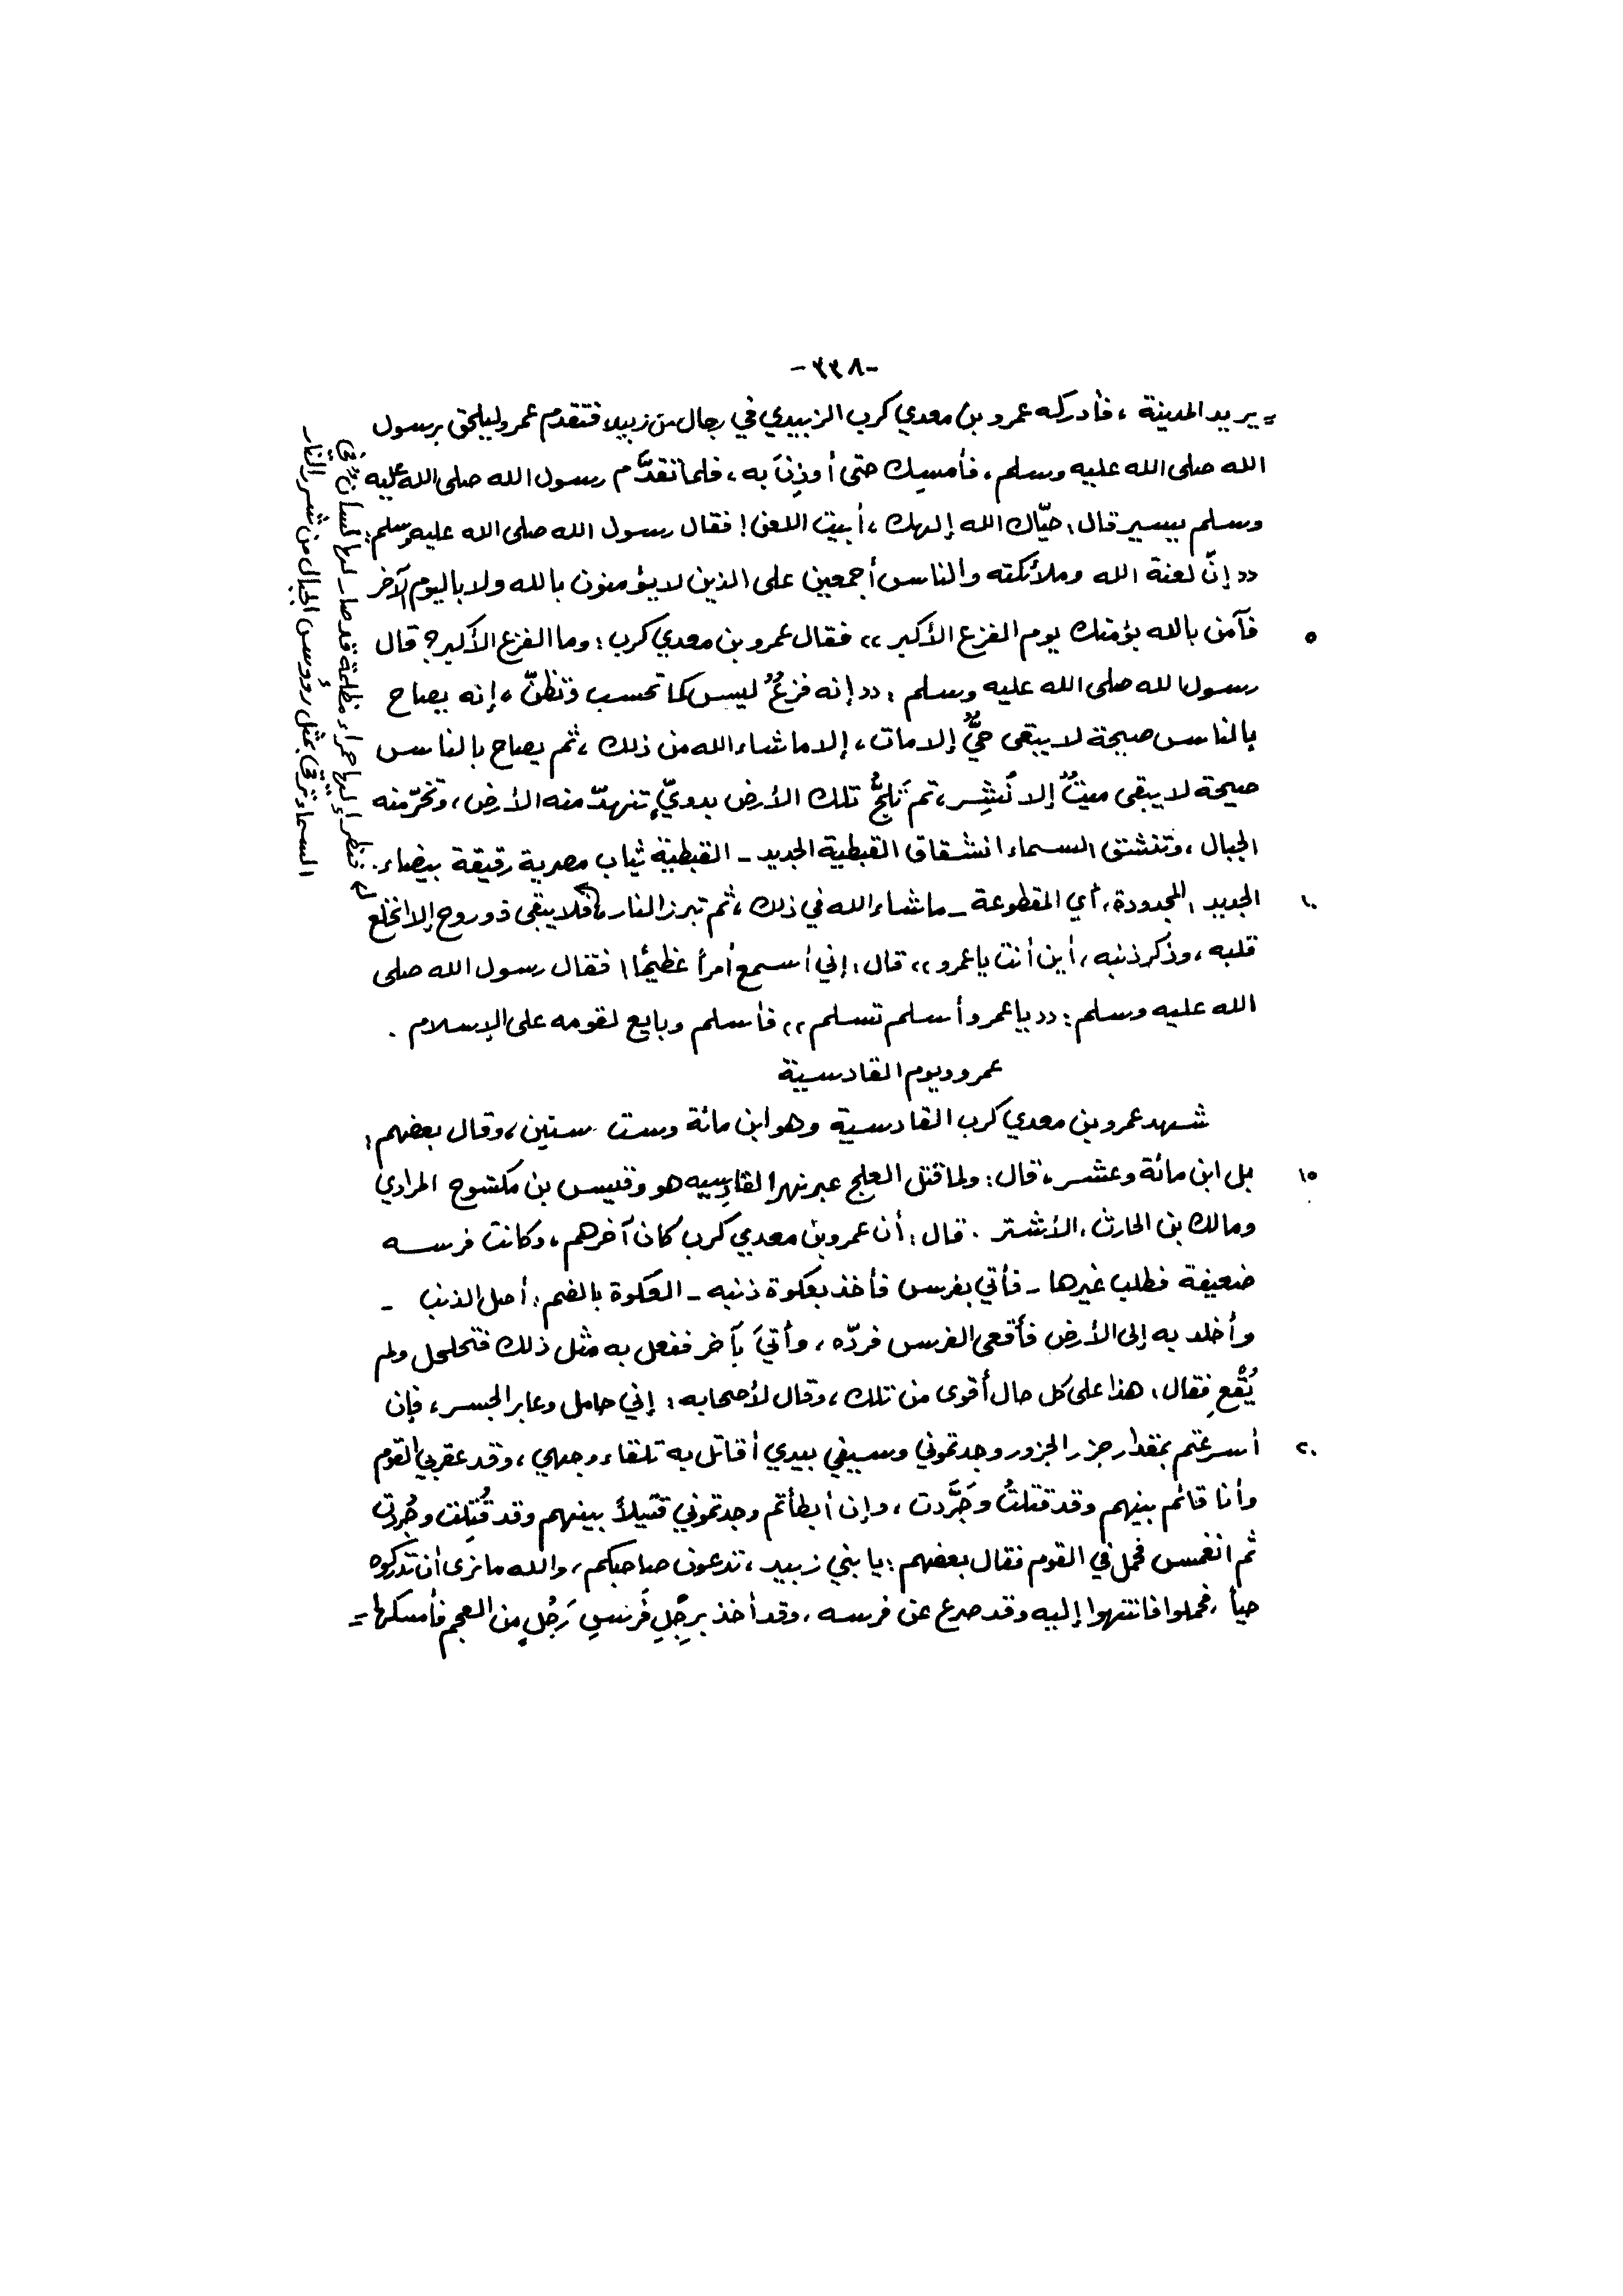 -٣٣٨-
= يريد المدينة ، فأدركه عمرو بن معدي كرب الزبيدي في رجال من زبيد، فتقدم عمرو ليلحق برسول
الله صلى الله عليه وسلم ، فأمسك حتى أوذِنَ به ، فلما تقدَّم رسول الله صلى الله عليه
وسلم يسير قال : حيّاك الله إلهك ، أبيت اللعن ! فقال رسول الله صلى الله عليه وسلم :
(( إنّ لعنة الله وملائكته والناس أجمعين على الذين لا يؤمنون بالله ولا باليوم الآخر
٥ فآمن بالله يؤمنك يوم الفزع الأكبر )) فقال عمرو بن معدي كرب : وما الفزع الأكبر ؟ قال
رسول الله صلى الله عليه وسلم : (( إنه فزعٌ ليس كما تحسب وتظنّ ، إنه يصاح
بالناس صيحة لا يبقى حيٌّ إلا مات ، إلا ما شاء الله من ذلك ، ثم يصاح بالناس
صيحة لا يبقى ميتٌ إلا نُشِر ، ثم تَلجُّ تلك الأرض بدويٍّ تنهدّ منه الأرض ، وتخرّ منه
الجبال ، وتنشق السماء انشقاق القبطية الجديد - القبطية ثياب مصرية رقيقة بيضاء .
١٠ الجديد : المجدودة ، أي المقطوعة - ما شاء الله في ذلك ، ثم تبرز النار ، فلا يبقى ذو روح إلا انخلع
قلبه ، وذكر ذنبه ، أين أنت يا عمرو )) قال : إني أسمع أمراً عظيمًا ! فقال رسول الله صلى
الله عليه وسلم : (( يا عمرو أسلم تسلم )) فأسلم وبايع لقومه على الإسلام .
عمرو ويوم القادسية
شهد عمرو بن معدي كرب القادسية وهو ابن مائة وست سنين ، وقال بعضهم :
١٥ بل ابن مائة وعشر ، قال : ولما قتل العلج عبر نهر القادسيه هو وقيس بن مكشوح المرادي
ومالك بن الحارث ، الأشتر . قال : أن عمرو بن معدي كرب كان آخرهم ، وكانت فرسه
ضعيفة فطلب غيرها - فأتي بفرس فأخذ بعكوة ذنبه - العكوة بالضم : أصل الذنب -
وأخلد به إلى الأرض فأقعى الفرس فردّه ، وأتيَ بآخر ففعل به مثل ذلك فتحلحل ولم
يُقْعِ فقال : هذا على كل حال أقوى من تلك ، وقال لأصحابه : إني حامل وعابر الجسر ، فإن
٢٠ أسرعتم بمقدار جزر الجزور وجدتموني وسيفي بيدي أقاتل به تلقاء وجهي ، وقد عقر بي القوم
وأنا قائم بينهم وقد قتلتُ وجَرَّدت ، وإن أبطأتم وجدتموني قتيلاً بينهم وقد قُتِلت وجُردت
ثم انغمس فحمل في القوم فقال بعضهم : يا بني زبيد ، تدعون صاحبكم ، والله ما نرى أن تدركوه
حياً ، فحملوا فانتهوا إليه وقد صرع عن فرسه ، وقد أخذ برِجْلِ فَرَسِ رَجُلٍ من العجم فأمسكها =
فتنظر إليها حمراء مظلمة قد صار لها لسان في
السماء ترمي بمثل رؤوس الجبال من شرر النار